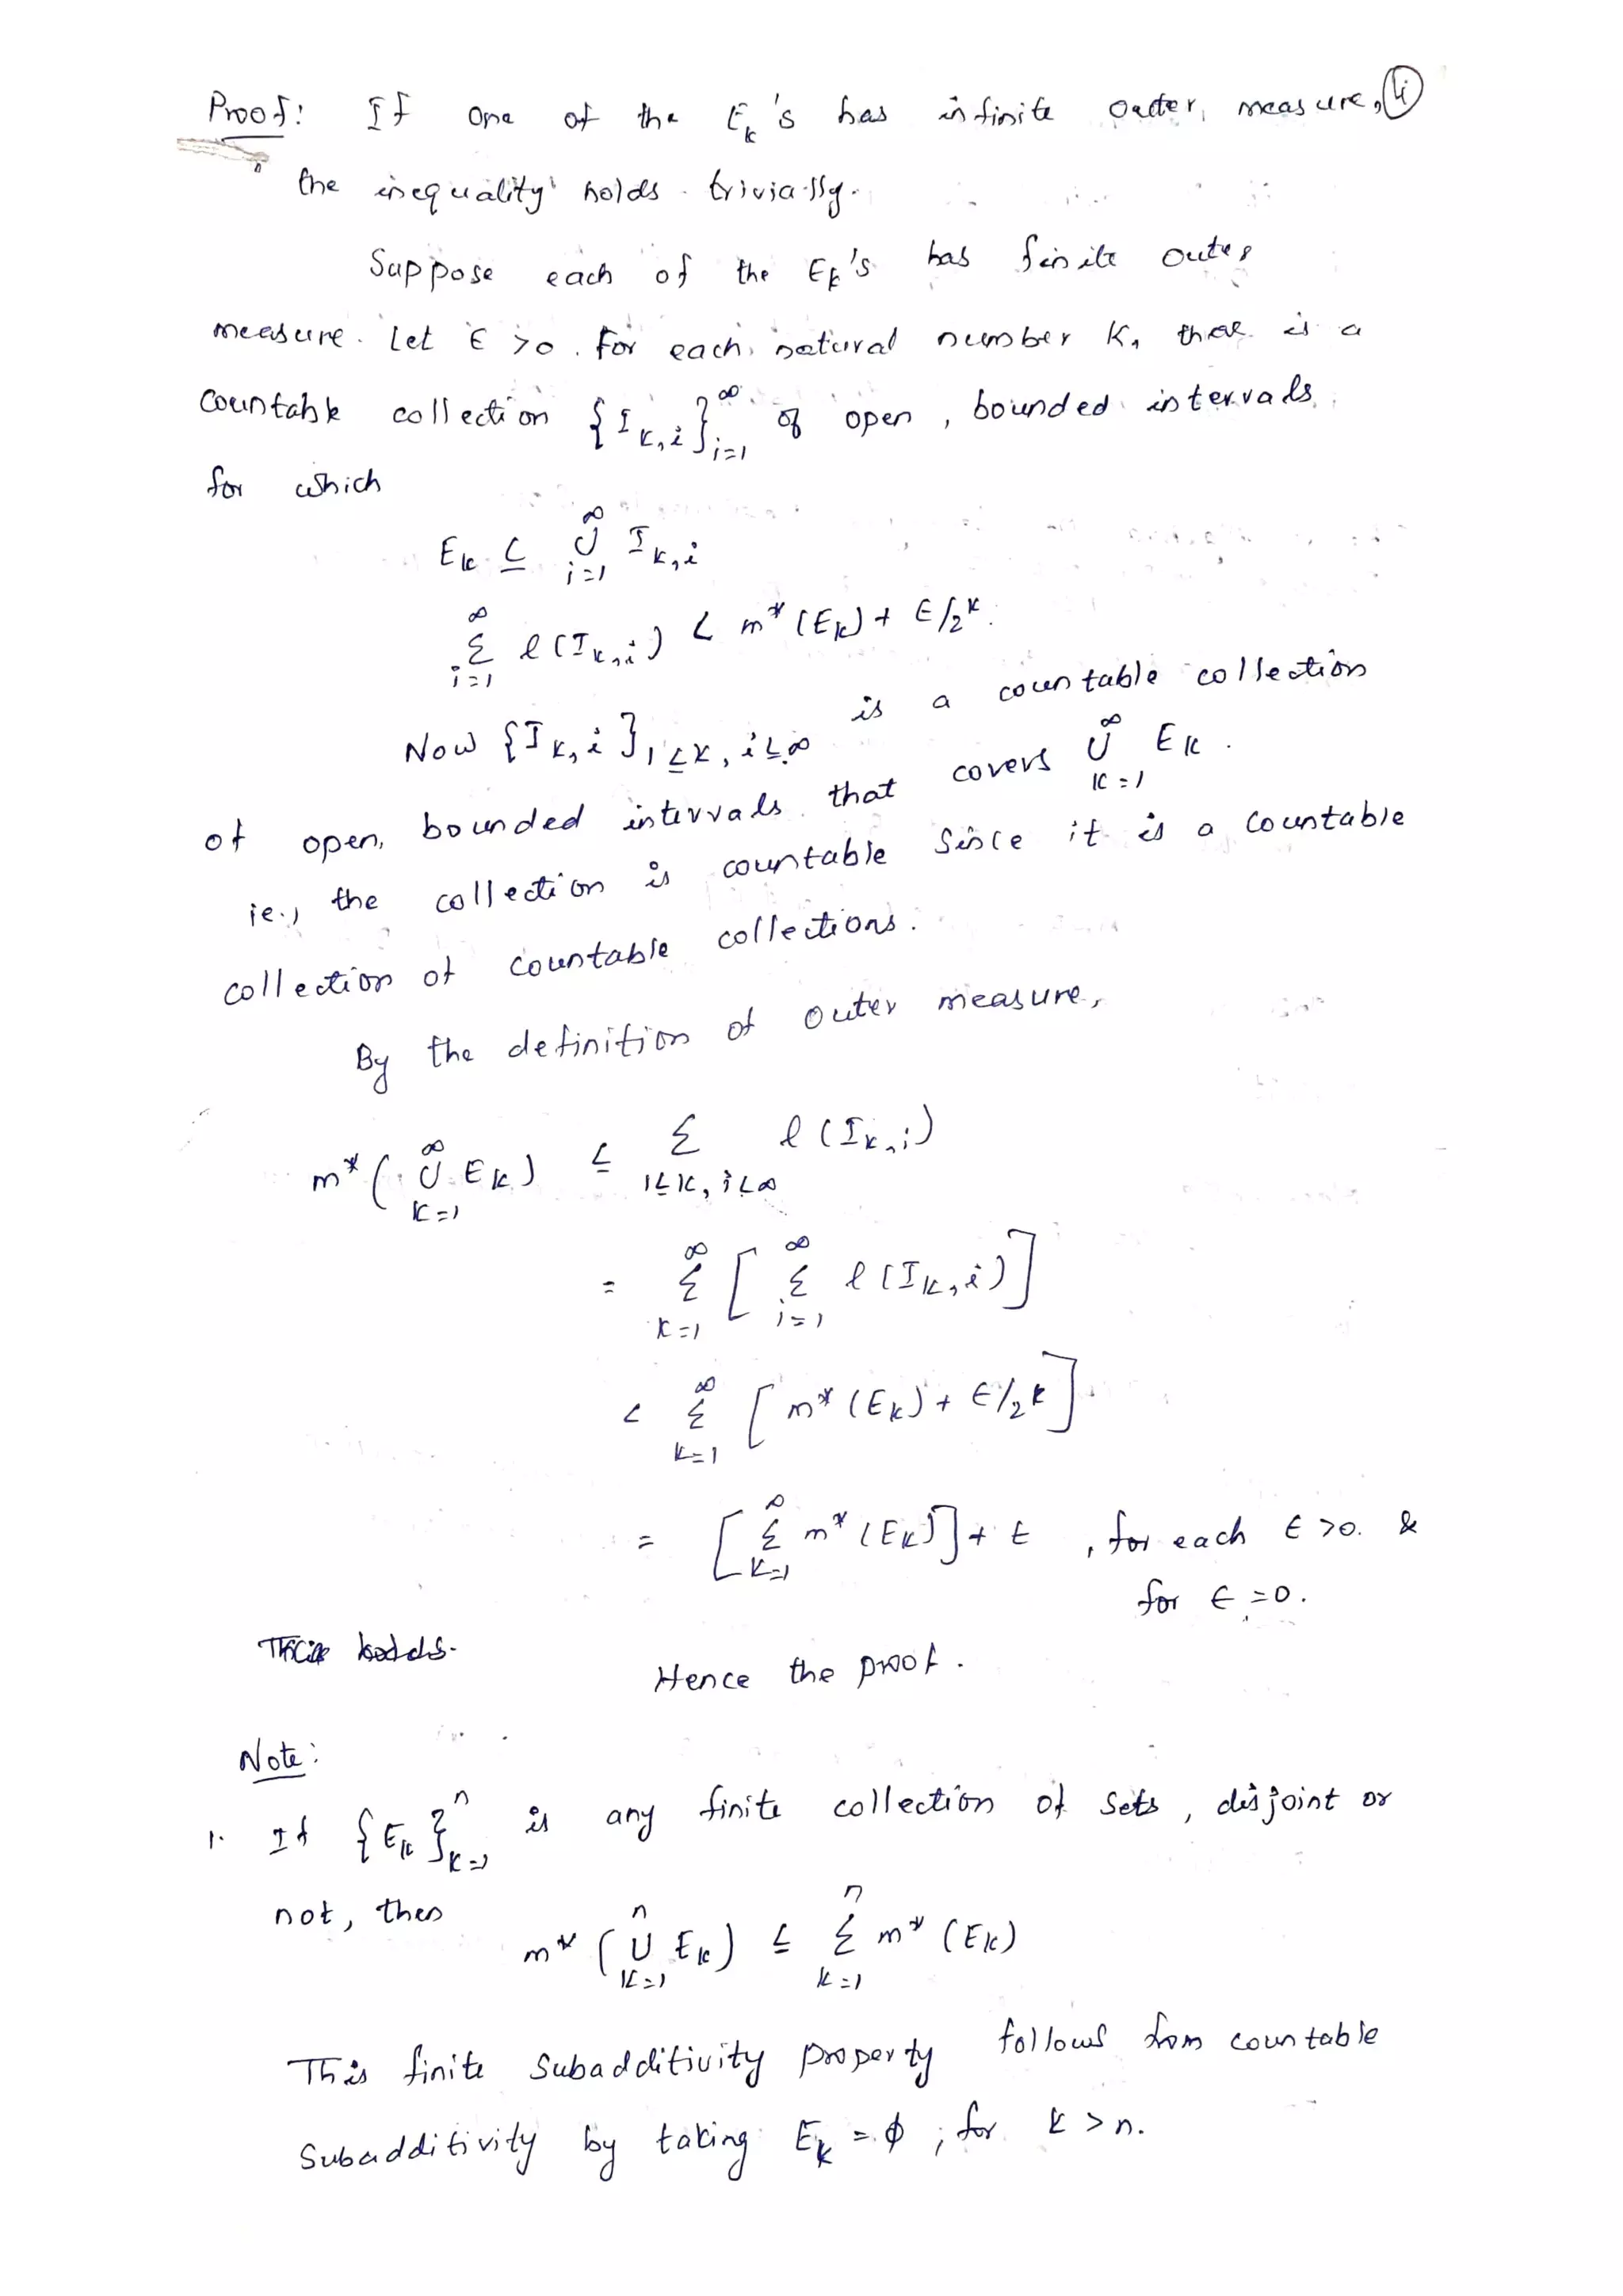 Proof: If one of the E_k's has infinite outer measure, (4)
the inequality holds trivially.
Suppose each of the E_k's has finite outer
measure. Let ε > 0. For each natural number K, there is a
countable collection {I_{k,i}}_{i=1}^∞ of open, bounded intervals
for which
E_k ⊆ ∪_{i=1}^∞ I_{k,i}
∑_{i=1}^∞ l(I_{k,i}) < m*(E_k) + ε/2^k.
Now {I_{k,i}}_{1≤k,i≤∞} is a countable collection
of open, bounded intervals that covers ∪_{k=1}^∞ E_k.
ie., the collection is countable since it is a countable
collection of countable collections.
By the definition of outer measure,
m*(∪_{k=1}^∞ E_k) ≤ ∑_{1≤k,i<∞} l(I_{k,i})
= ∑_{k=1}^∞ [∑_{i=1}^∞ l(I_{k,i})]
< ∑_{k=1}^∞ [m*(E_k) + ε/2^k]
= [∑_{k=1}^∞ m*(E_k)] + ε, for each ε > 0. &
for ε = 0.
Hence the proof.
Note:
1. If {E_k}_{k=1}^n is any finite collection of sets, disjoint or
not, then
m*(∪_{k=1}^n E_k) ≤ ∑_{k=1}^n m*(E_k)
This finite subadditivity property follows from countable
subadditivity by taking E_k = ϕ; for k > n.